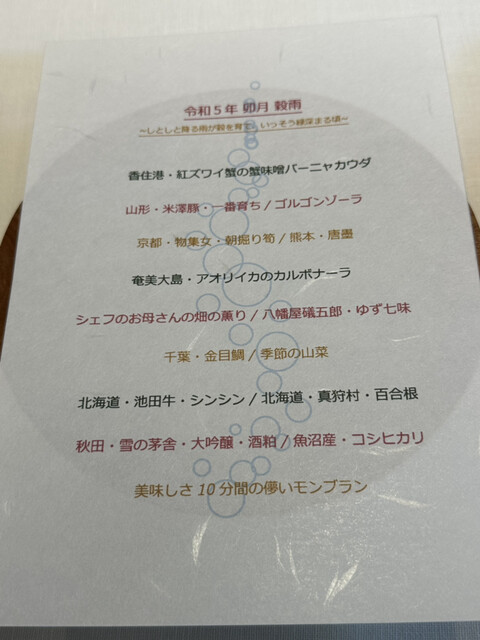 令和5年 卯月 穀雨
~しとしと降る雨が穀を育て、いっそう緑深まる頃~
香住港・紅ズワイ蟹の蟹味噌バーニャカウダ
山形・米澤豚・一番育ち / ゴルゴンゾーラ
京都・物集女・朝掘り筍 / 熊本・唐墨
奄美大島・アオリイカのカルボナーラ
シェフのお母さんの畑の薫り / 八幡屋礒五郎・ゆず七味
千葉・金目鯛 / 季節の山菜
北海道・池田牛・シンシン / 北海道・真狩村・百合根
秋田・雪の茅舎・大吟醸・酒粕 / 魚沼産・コシヒカリ
美味しさ10分間の儚いモンブラン